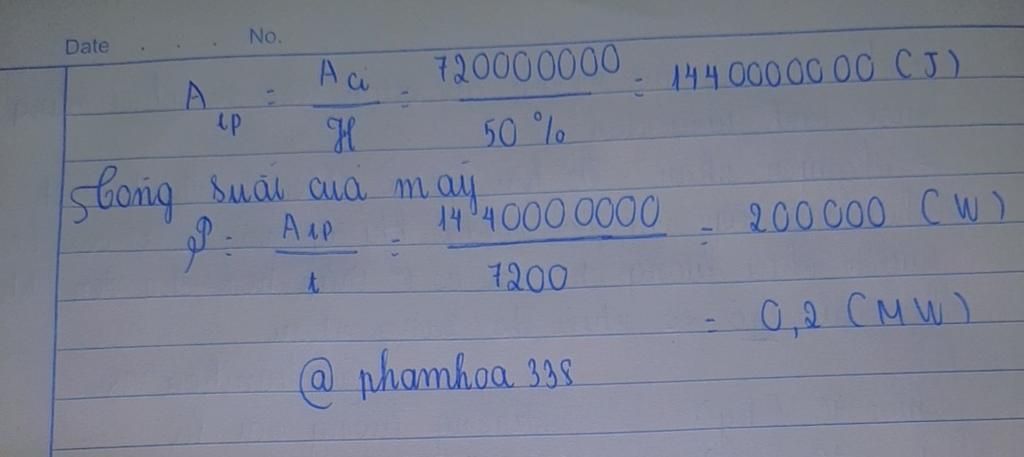 Date . . . No.
A tp = A ci / H = 720000000 / 50 % = 1440000000 (J)
Công suất của máy
P = A tp / t = 1440000000 / 7200 = 200000 (W)
= 0,2 (MW)
@ phamhoa 338